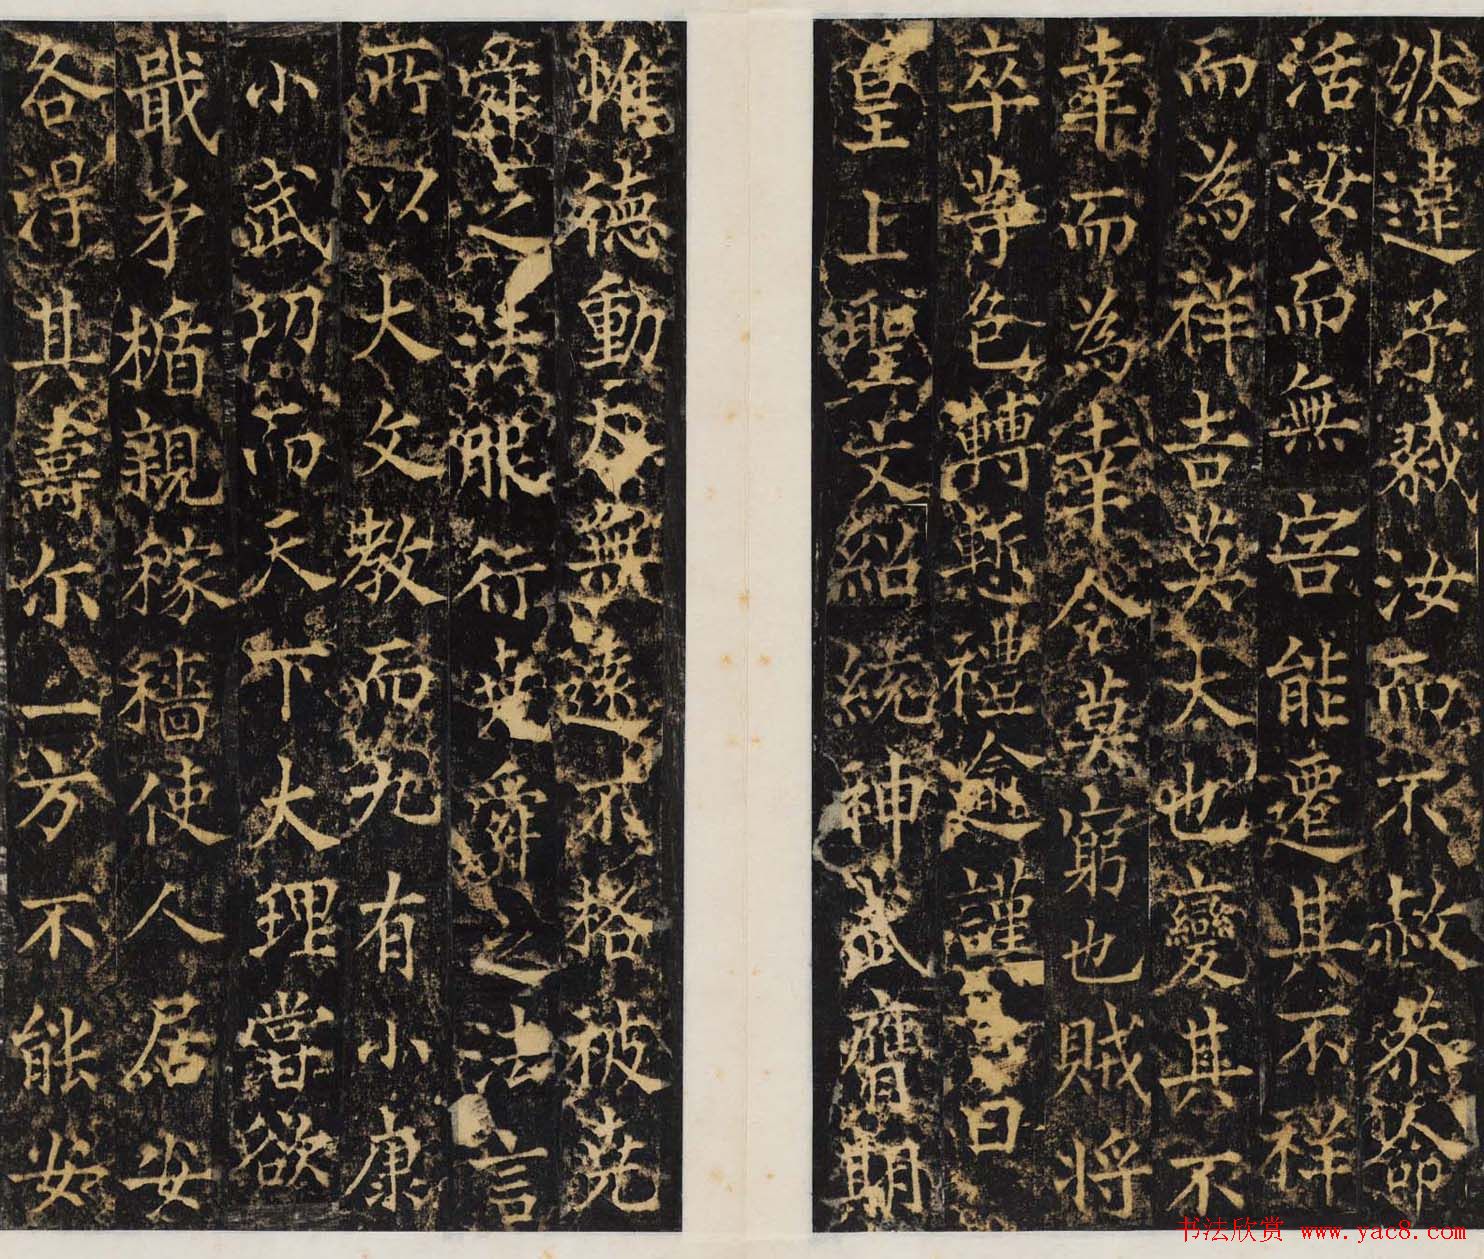 然違予裁汝而不赦恭命
活汝而無害能遷其不祥
而為祥吉莫大也變其不
幸而為幸令莫窮也賊將
卒等色轉慙禮逾謹曰
皇上聖文紹統神武膺期
惟德動天無遠不格被堯
舜之法服行堯舜之法言
所以大文教而允有小康
小武功而天下大理當欲
戢矛楯親稼穡使人居安
各得其壽尔一方不能安
书法欣赏 www.yac8.com